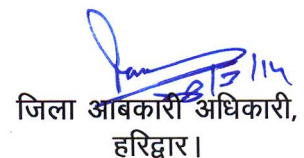 8/7/14
जिला आबकारी अधिकारी,
हरिद्वार।